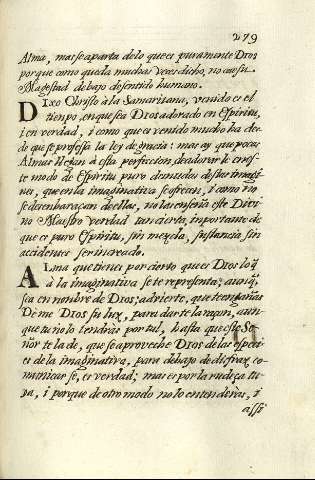 279
Alma, mas se aparta de lo que es puramente Dios
porque como queda muchas veces dicho, no cae su
Magestad debajo de sentido humano.
Dixo Christo à la Samaritana, venido es el
tiempo, en que sea Dios adorado en Espiritu,
i en verdad, i como que es venido mucho ha des-
de que se professa la ley de gracia: mas ay que pocas
Almas llegan à esta perfeccion de adorarle en es-
te modo de Espiritu puro desnudos destas imagi-
nes, que en la imaginativa se ofrecen, i como no
se desembaraçan de ellas, no la enseña este Divi-
no Maestro verdad tan cierta, importante de
que es puro Espiritu, sin mezcla, sustancia sin
accidentes ser increado.
Alma que tienes por cierto que es Dios lo q̃
à la imaginativa se te representa; aunq̃
sea en nombre de Dios; advierte, que te engañas
Deme Dios su luz, para darte la razon, aun-
que tu no lo tendràs por tal, hasta que este Se-
ñor te la de, que se aproveche Dios de las especi-
es de la imaginativa, para debajo de disfraz co-
municarse, es verdad; mas es por la rudeça tu-
ya, i porque de otro modo no lo entenderias, i
assi